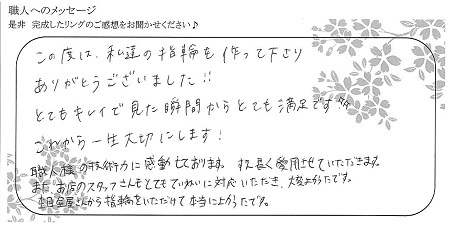 職人へのメッセージ
是非 完成したリングのご感想をお聞かせください♪
この度は、私達の指輪を作って下さり
ありがとうございました!!
とてもキレイで見た瞬間からとても満足です!!
これから一生大切にします!
職人様の技術力に感動しております。末長く愛用させていただきます。
また、お店のスタッフさんもとてもていねいに対応いただき、大変よかったです。
杢目金屋さんから指輪をいただけて本当に良かったです。